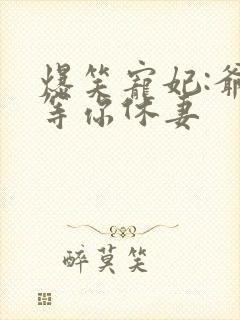 爆笑寵妃:爺
等你休妻
醉莫笑